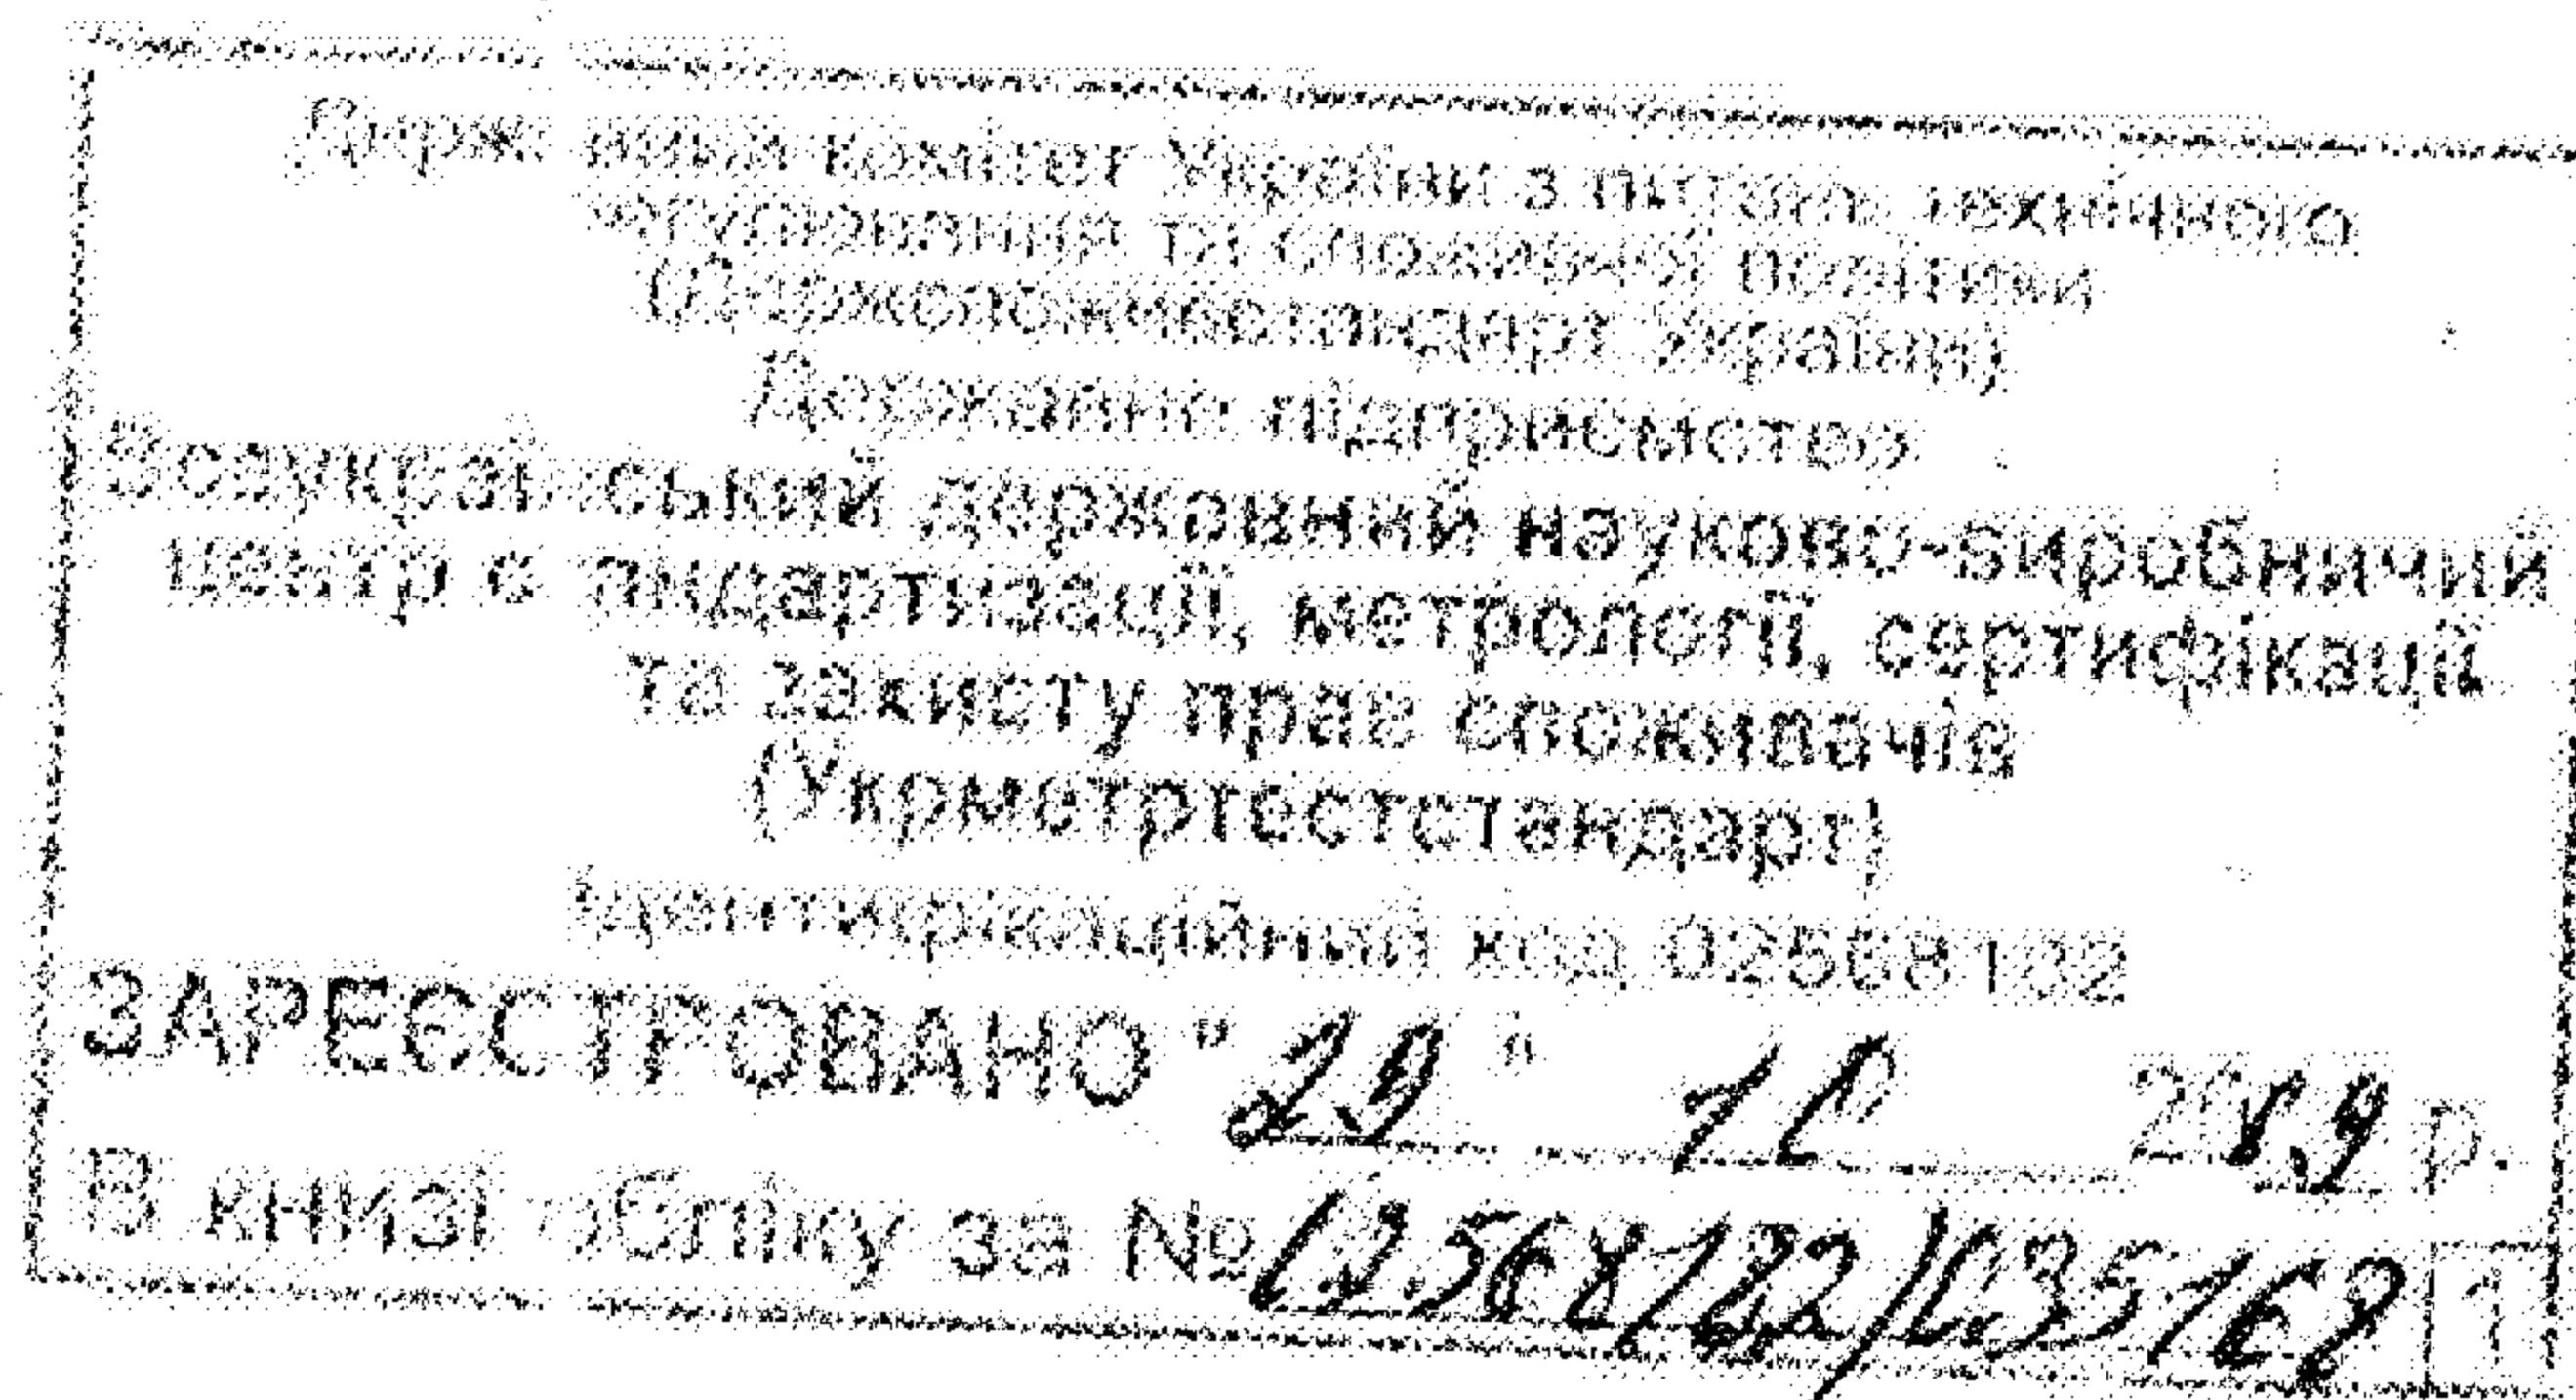 Державний комітет України з питань технічного
регулювання та споживчої політики
(Держспоживстандарт України)
Державне підприємство
Всеукраїнський державний науково-виробничий
центр стандартизації, метрології, сертифікації
та захисту прав споживачів
(Укрметртестстандарт)
Ідентифікаційний код 02568182
ЗАРЕЄСТРОВАНО "29" 10 2009 р.
В книзі обліку за № 02568182/035167 1